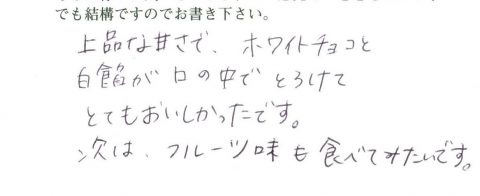 でも結構ですのでお書き下さい。
上品な甘さで、ホワイトチョコと
白餡が口の中でとろけて
とてもおいしかったです。
次は、フルーツ味も食べてみたいです。